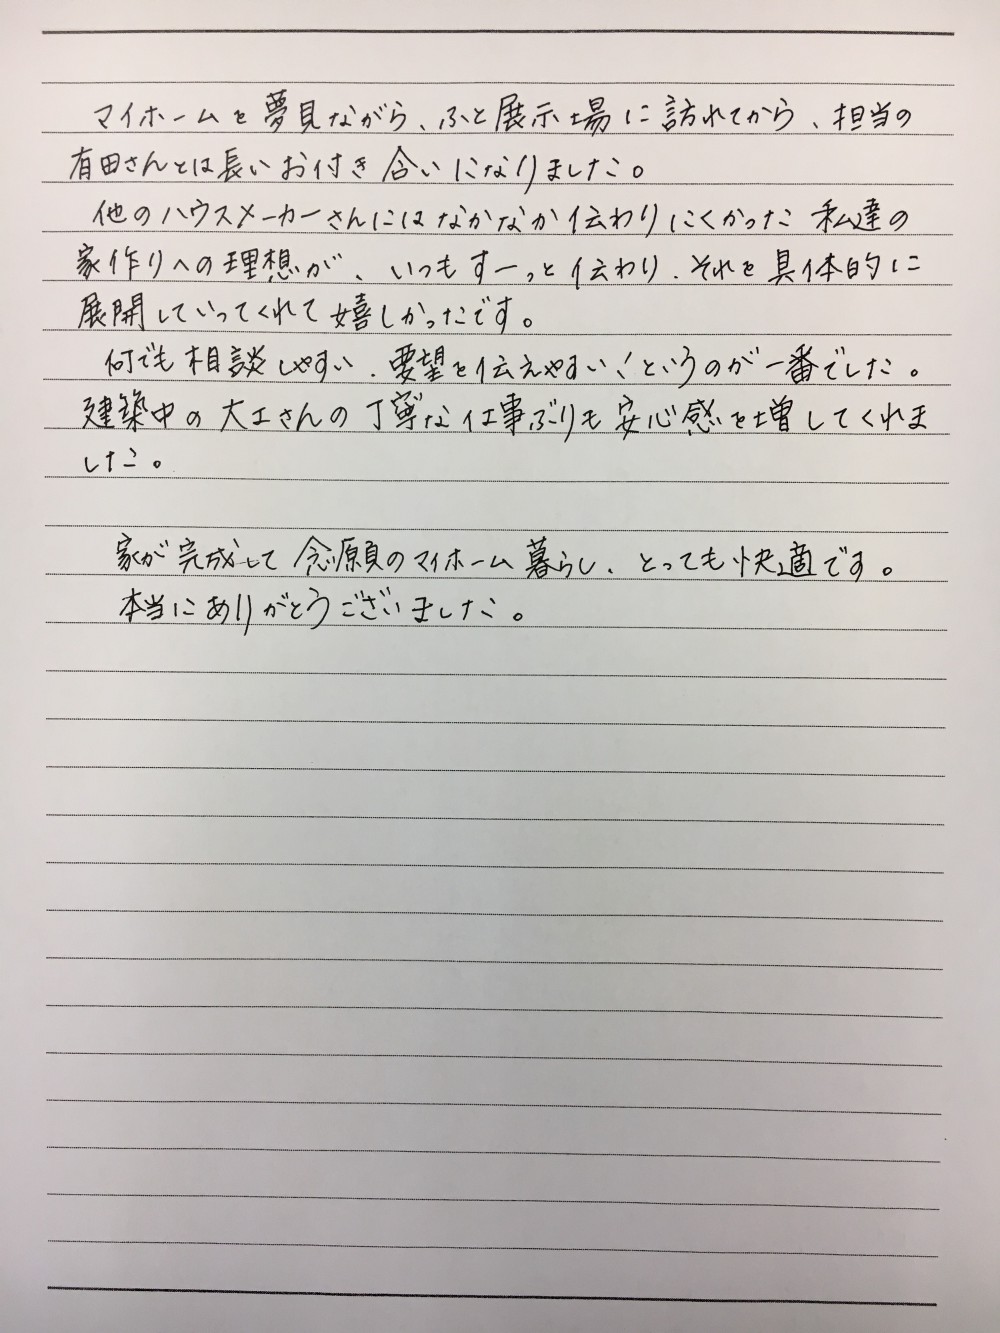 マイホームを夢見ながら、ふと展示場に訪れてから、担当の
有田さんとは長いお付き合いになりました。
他のハウスメーカーさんにはなかなか伝わりにくかった私達の
家作りへの理想が、いつもすーっと伝わり、それを具体的に
展開していってくれて嬉しかったです。
何でも相談しやすい、要望を伝えやすい！というのが一番でした。
建築中の大工さんの丁寧な仕事ぶりも安心感を増してくれま
した。
家が完成して念願のマイホーム暮らし、とっても快適です。
本当にありがとうございました。